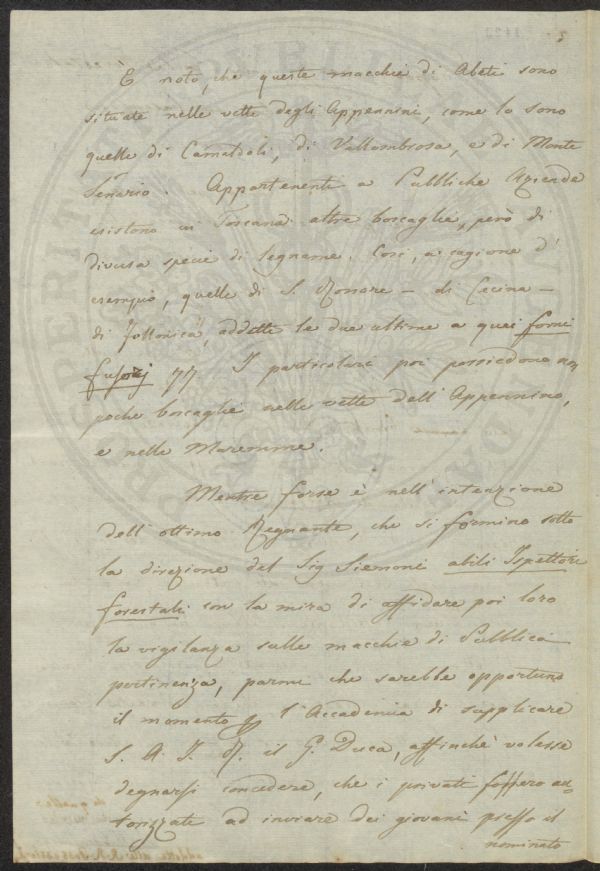 È noto, che queste macchie di Abeti sono
situate nelle vette degli Appennini, come lo sono
quelle di Camaldoli, di Vallombrosa, e di Monte
Senario. Appartenenti a Pubbliche Aziende
esistono in Toscana altre boscaglie, però di
diversa specie di legname. Così, a cagione d'
esempio, quelle di S. Rossore - di Cecina -
di Follonica, addette le due ultime a quei forni
fusorj I particolari poi possiedono non
poche boscaglie nelle vette dell'Appennino,
e nelle Maremme.
Mentre forse è nell'intenzione
dell'ottimo Regnante, che si formino sotto
la direzione del Sig Siemoni abili Ispettori
forestali con la mira di affidare poi loro
la vigilanza sulle macchie di Pubblica
pertinenza, parmi che sarebbe opportuno
il momento l'Accademia di supplicare
S. A. I. R. il G. Duca, affinchè volesse
degnarsi concedere, che i privati fossero au-
torizzati ad inviare dei giovani presso il
nominato
PROSPERITÀ